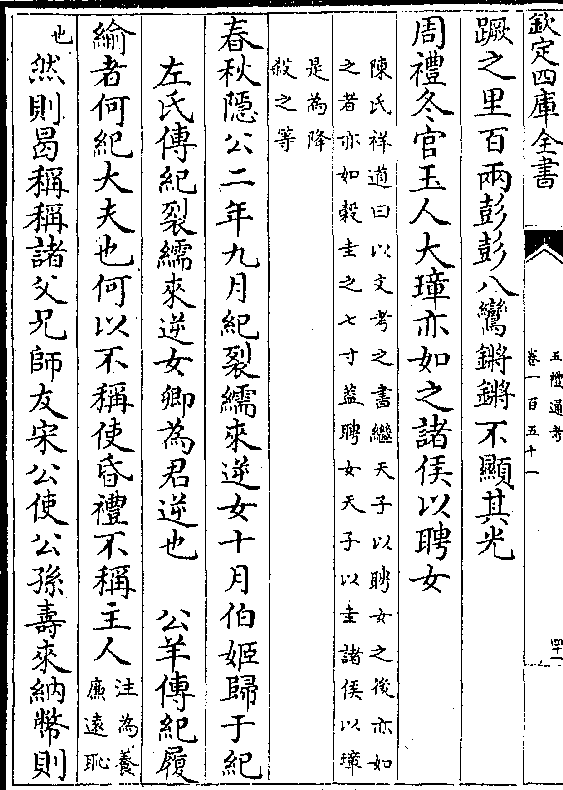 欽定四庫全書
五禮通考
卷一百五十一
四十一
蹶之里百兩彭彭八鸞鏘鏘不顯其光
周禮冬官玉人大璋亦如之諸侯以聘女
陳氏祥道曰以文考之書繼天子以聘女之後亦如
之者亦如榖圭之七寸蓋聘女天子以圭諸侯以璋
是為降
殺之等
春秋隱公二年九月紀裂繻來逆女十月伯姬歸于紀
左氏傳紀裂繻來逆女卿為君逆也 公羊傳紀履
繻者何紀大夫也何以不稱使昏禮不稱主人注為養
廉遠恥
也然則曷稱稱諸父兄師友宋公使公孫壽來納幣則